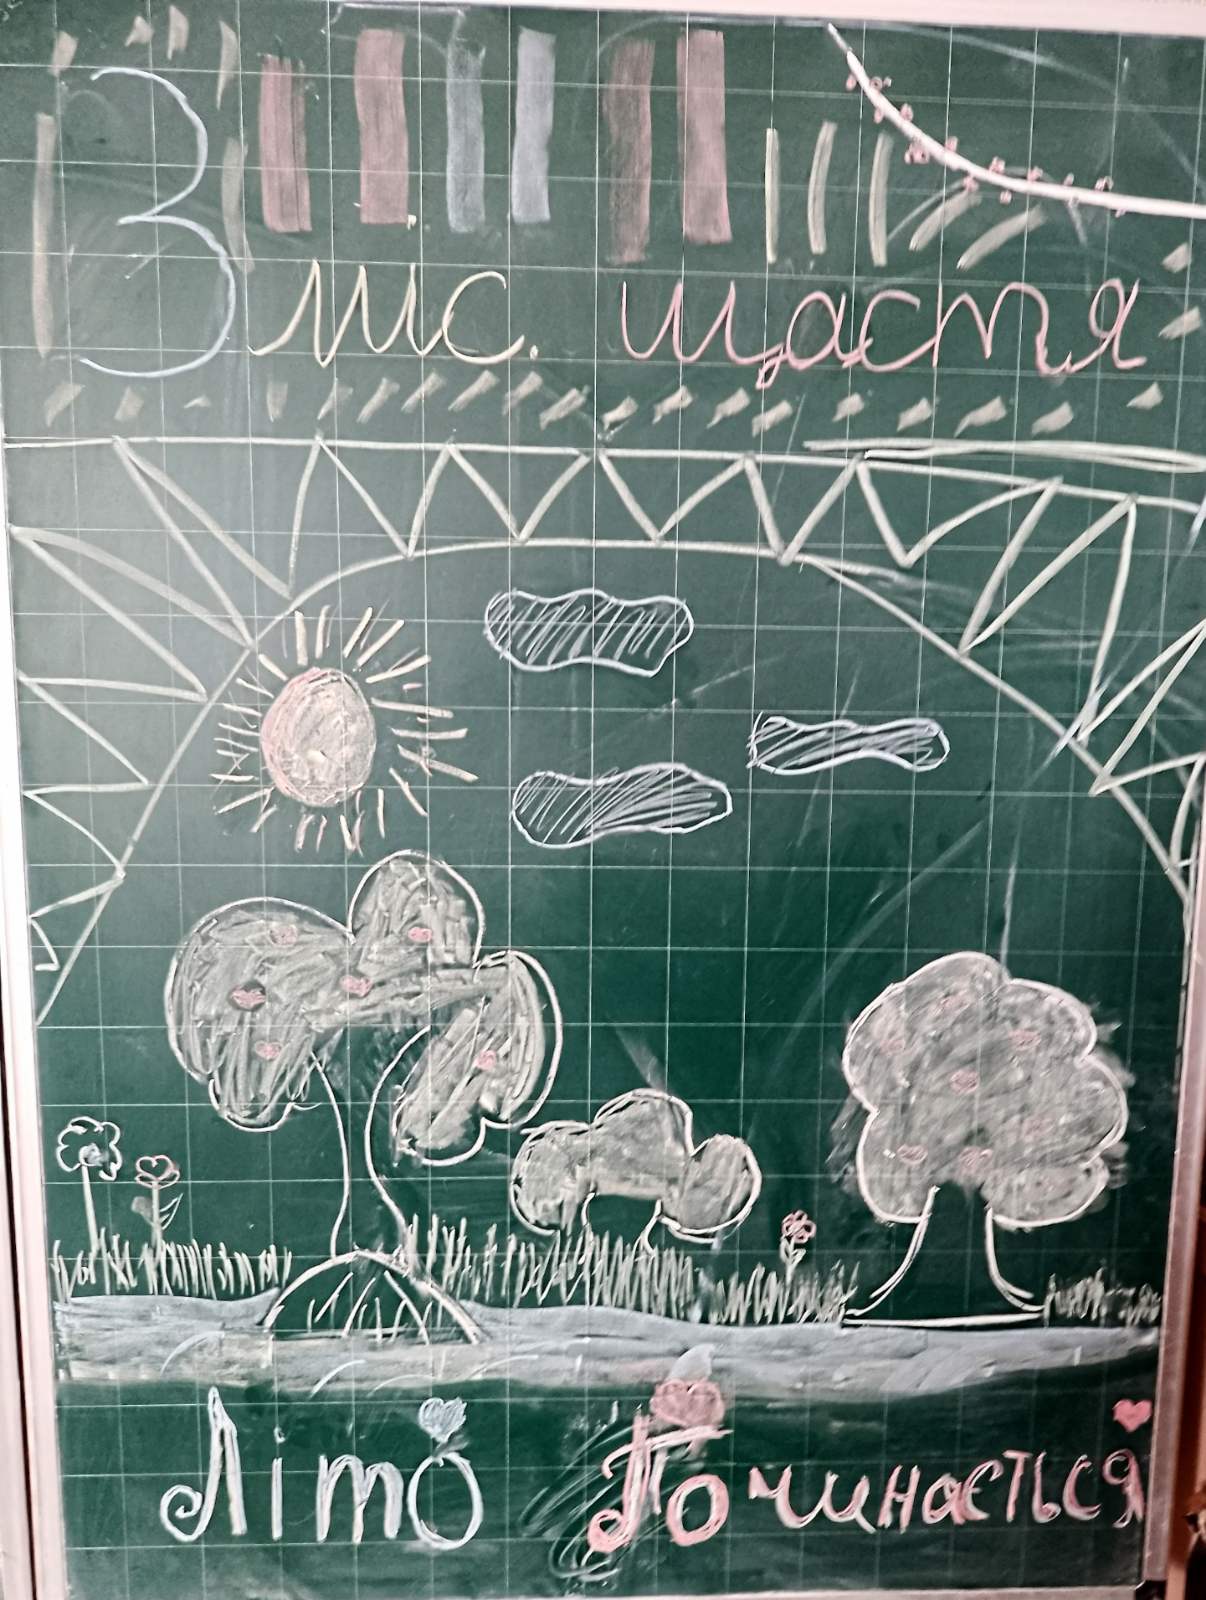 3 міс. щастя
Літо Починається